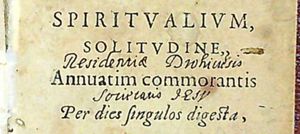 SPIRITVALIVM,
SOLITVDINE,
Residentiæ Drohiciensis
Annuatim commorantis
Societatis JESV
Per dies ſingulos digesta,